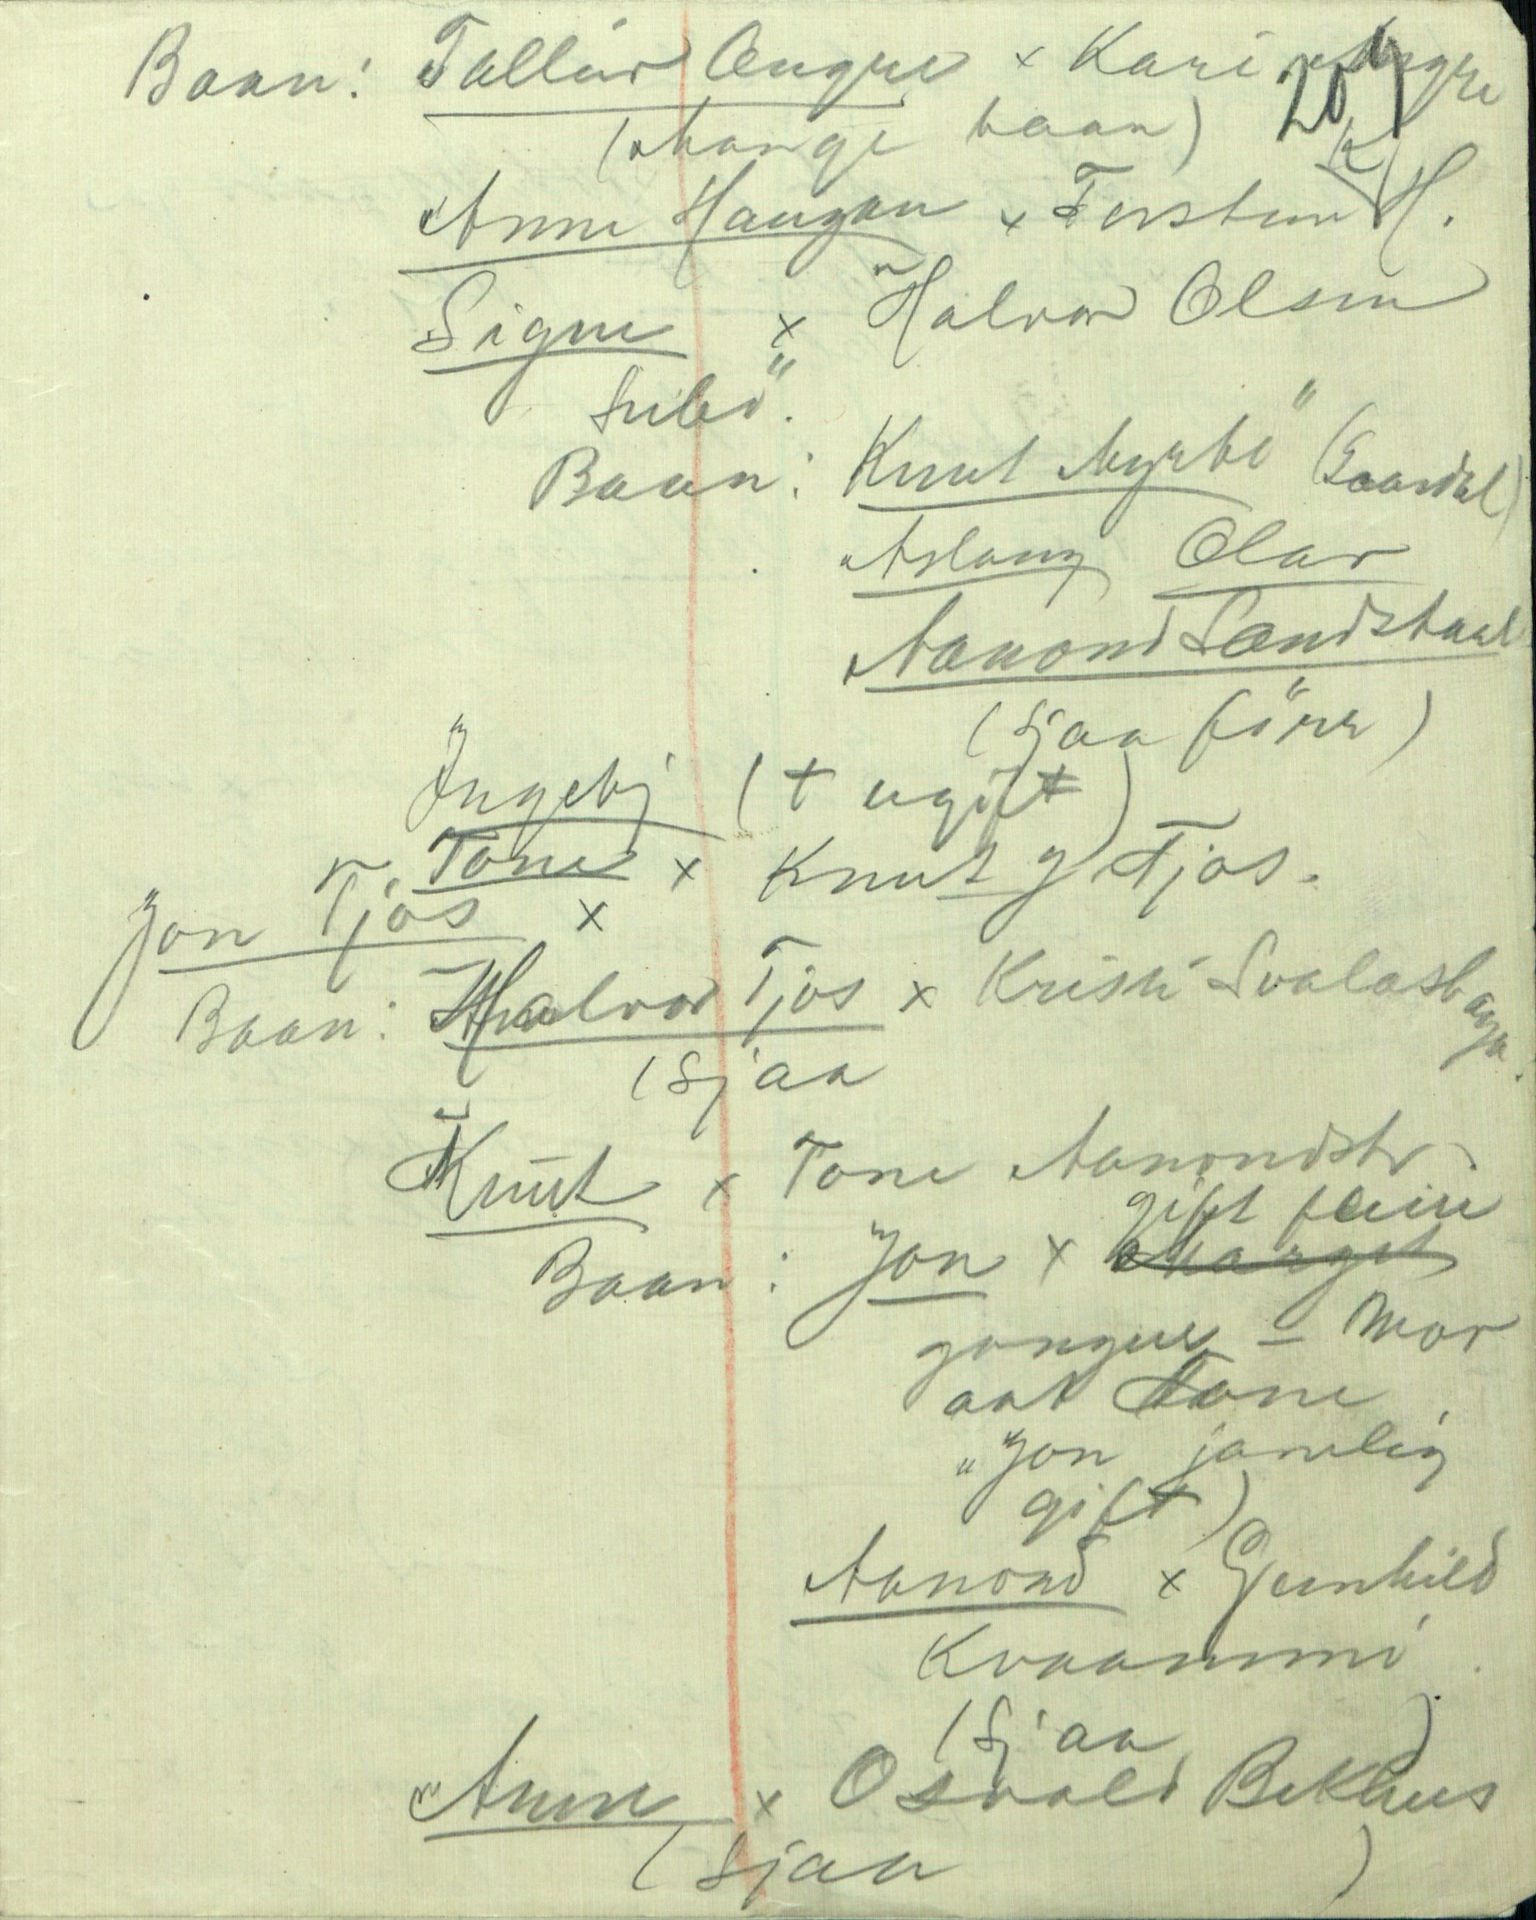 Baan: Tallēiv Ængre x Kari Ængre
(mange baan) 20
Anne Haugan x Torstein H.
Signe x Halvor Olsen
Lulei".
Baan: Knut Myrbö (Gaardal)
Aslaug Olav
Aanond Sandstaal
(sjaa förr)
Ingebj (+ ugift)
Tone x Knut g Tjos.
Jon Tjös x
Baan: Halvor Tjos x Kristi Svalastaaga.
(Sjaa
Knut x Tone Aanondstr.
Baan: Jon x Marget gift fleire
gongur – Mor
aat Tone
"Jon jamlig
gift)
Aanond x Gunhild
Kvaamme
(Sjaa )
Anne x Osvald Bekhus
(Sjaa )